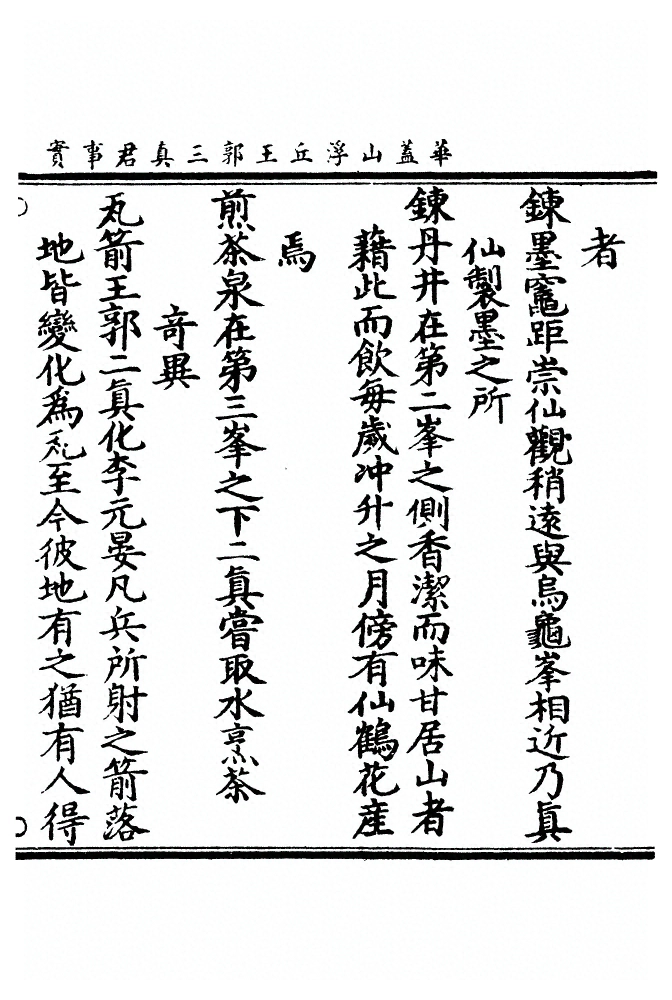 華蓋山浮丘王郭三真君事實
者
鍊墨竈距崇仙觀稍遠與烏龜峯相近乃眞
仙製墨之所
鍊丹井在第二峯之側香潔而味甘居山者
藉此而飲每歲冲升之月傍有仙鶴花産
焉
煎茶泉在第三峯之下二眞嘗取水烹茶
奇異
瓦箭王郭二眞化李元晏凡兵所射之箭落
地皆變化爲瓦至今彼地有之猶有人得